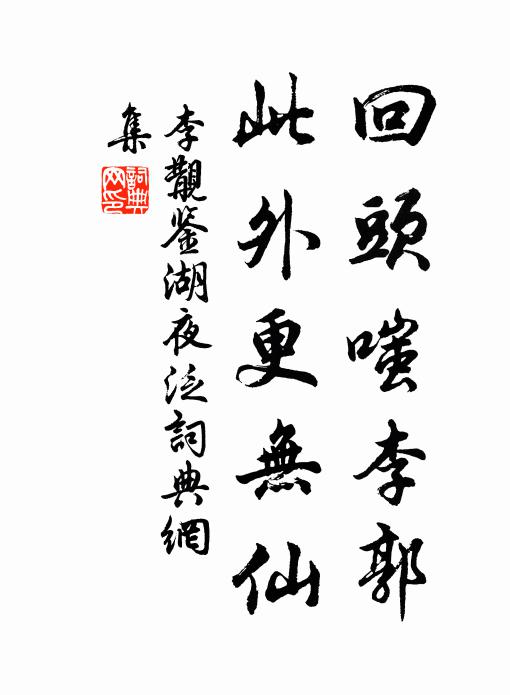 回頭嗤李郭
此外更無仙
李覯鉴湖夜泛詞典網
集
詞典網印